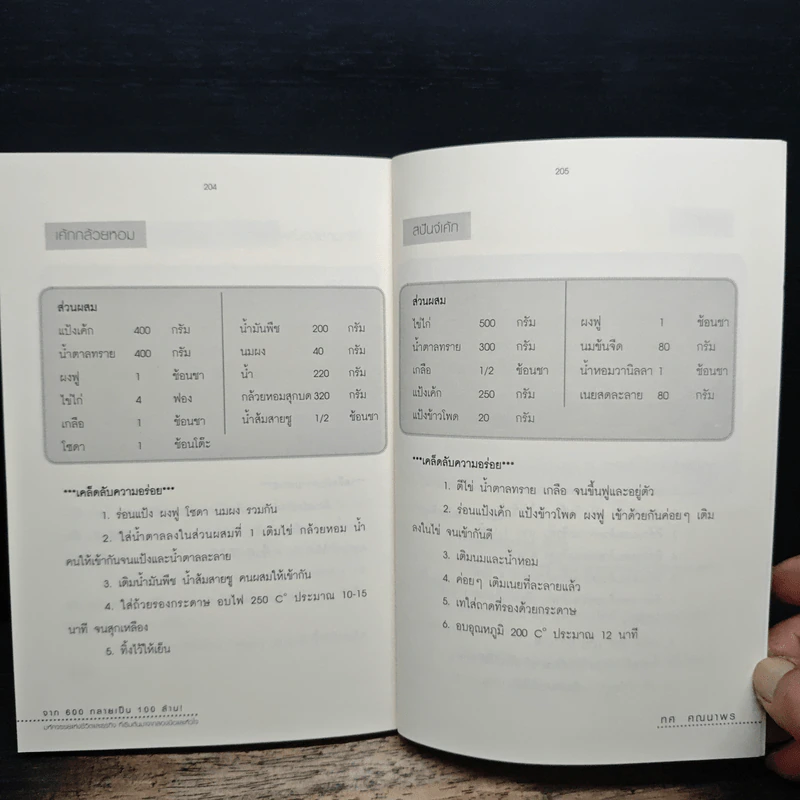 204
เค้กกล้วยหอม
ส่วนผสม
แป้งเค้ก 400 กรัม
น้ำตาลทราย 400 กรัม
ผงฟู 1 ช้อนชา
ไข่ไก่ 4 ฟอง
เกลือ 1 ช้อนชา
โซดา 1 ช้อนโต๊ะ
น้ำมันพืช 200 กรัม
นมผง 40 กรัม
น้ำ 220 กรัม
กล้วยหอมสุกบด 320 กรัม
น้ำส้มสายชู 1/2 ช้อนชา
***เคล็ดลับความอร่อย***
1. ร่อนแป้ง ผงฟู โซดา นมผง รวมกัน
2. ใส่น้ำตาลลงในส่วนผสมที่ 1 เติมไข่ กล้วยหอม น้ำ
คนให้เข้ากันจนแป้งและน้ำตาลละลาย
3. เติมน้ำมันพืช น้ำส้มสายชู คนผสมให้เข้ากัน
4. ใส่ถ้วยรองกระดาษ อบไฟ 250 C° ประมาณ 10-15
นาที จนสุกเหลือง
5. ทิ้งไว้ให้เย็น
จาก 600 กลายเป็น 100 ล้าน!
205
สปันจ์เค้ก
ส่วนผสม
ไข่ไก่ 500 กรัม
น้ำตาลทราย 300 กรัม
เกลือ 1/2 ช้อนชา
แป้งเค้ก 250 กรัม
แป้งข้าวโพด 20 กรัม
ผงฟู 1 ช้อนชา
นมข้นจืด 80 กรัม
น้ำหอมวานิลลา 1 ช้อนชา
เนยสดละลาย 80 กรัม
***เคล็ดลับความอร่อย***
1. ตีไข่ น้ำตาลทราย เกลือ จนขึ้นฟูและอยู่ตัว
2. ร่อนแป้งเค้ก แป้งข้าวโพด ผงฟู เข้าด้วยกันค่อยๆ เติม
ลงในไข่ จนเข้ากันดี
3. เติมนมและน้ำหอม
4. ค่อยๆ เติมเนยที่ละลายแล้ว
5. เทใส่ถาดที่รองด้วยกระดาษ
6. อบอุณหภูมิ 200 C° ประมาณ 12 นาที
ทศ คณนาพร